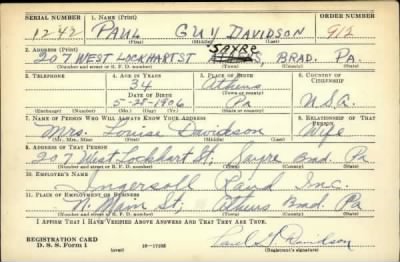 SERIAL NUMBER 1. NAME (Print) ORDER NUMBER
1242 PAUL GUY DAVIDSON 912
(First) (Middle) (Last)
2. ADDRESS (Print) SAYRE
207 WEST LOCKHART ST BRAD. PA.
(Number and street or R. F. D. number) (Town) (County) (State)
3. TELEPHONE 4. AGE IN YEARS 5. PLACE OF BIRTH 6. COUNTRY OF CITIZENSHIP
34 Athens
DATE OF BIRTH (Town or county)
5-28-1906 Pa U.S.A.
(Exchange) (Number) (Mo.) (Day) (Yr.) (State or country)
7. NAME OF PERSON WHO WILL ALWAYS KNOW YOUR ADDRESS 8. RELATIONSHIP OF THAT PERSON
Mrs. Louise Davidson Wife
(Mr., Mrs., Miss) (First) (Middle) (Last)
9. ADDRESS OF THAT PERSON
207 West Lockhart St; Sayre Brad. Pa
(Number and street or R. F. D. number) (Town) (County) (State)
10. EMPLOYER'S NAME
Ingersoll Rand Inc.
11. PLACE OF EMPLOYMENT OR BUSINESS
N. Main St; Athens Brad. Pa
(Number and street or R. F. D. number) (Town) (County) (State)
I AFFIRM THAT I HAVE VERIFIED ABOVE ANSWERS AND THAT THEY ARE TRUE.
REGISTRATION CARD
D. S. S. Form 1 (over) Paul G. Davidson
(Registrant's signature)